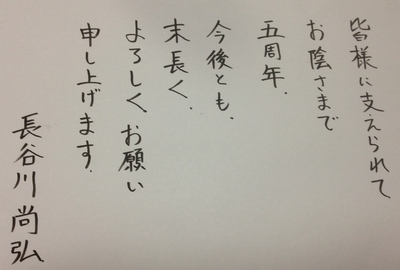 皆様に支えられて
お陰さまで
五周年.
今後とも.
末長く.
よろしくお願い
申し上げます.
長谷川尚弘